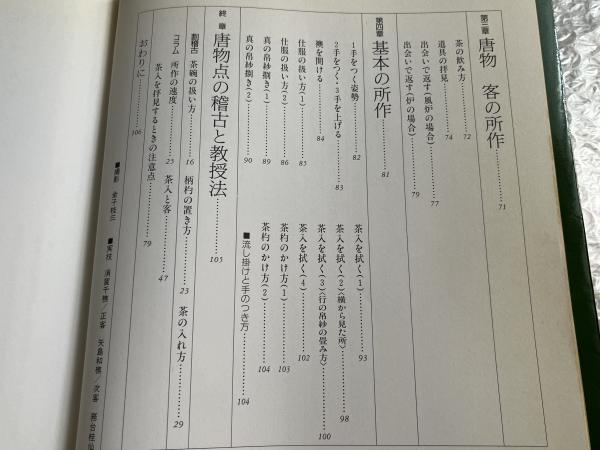 第三章 唐物 客の所作………71
茶の飲み方………72
道具の拝見………74
出会いで返す(風炉の場合)………77
出会いで返す(炉の場合)………79
第四章 基本の所作………81
1手をつく姿勢………82
2手をつく・3手を上げる………83
襖を開ける………84
仕服の扱い方(1)………85
仕服の扱い方(2)………86
真の帛紗捌き(1)………89
真の帛紗捌き(2)………90
茶入を拭く(1)………93
茶入を拭く(2)〈横から見た所〉………98
茶入を拭く(3)〈行の帛紗の畳み方〉………100
茶入を拭く(4)………102
茶杓のかけ方(1)………103
茶杓のかけ方(2)………104
■流し掛けと手のつき方………104
終章 唐物点の稽古と教授法………105
割稽古 茶碗の扱い方………16 柄杓の置き方………23 茶の入れ方………29
コラム 所作の速度………25 茶入と客………47
茶入を拝見するときの注意点………79
おわりに………106
■撮影 金子桂三 ■実技 須賀千穂/正客 矢島和穂/次客